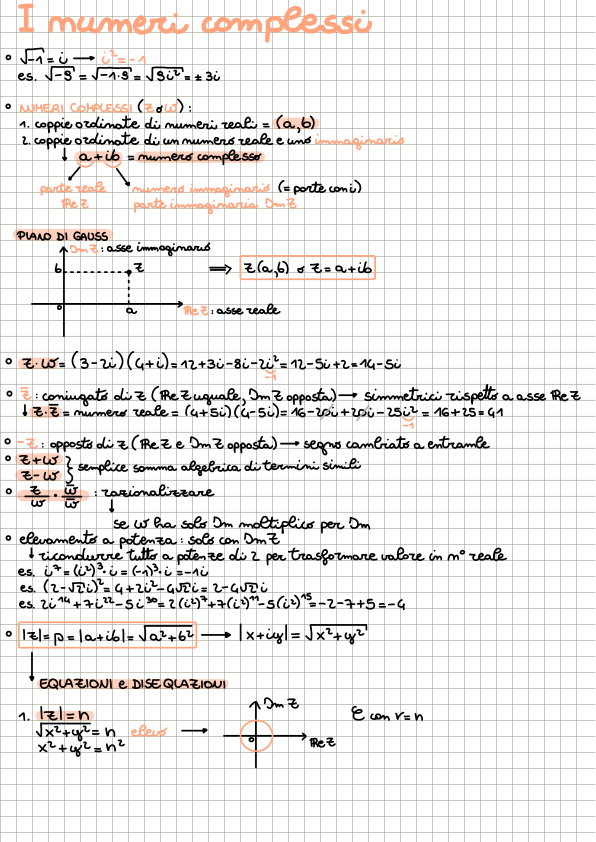 I numeri complessi
√-1 = i → i² = -1
es. √-9 = √-1·9 = √9i² = ±3i
NUMERI COMPLESSI (Z o W) :
1. coppie ordinate di numeri reali = (a,b)
2. coppie ordinate di un numero reale e uno immaginario
↓ a+ib = numero complesso
parte reale numero immaginario (= parte con i)
ReZ parte immaginaria ImZ
PIANO DI GAUSS
ImZ : asse immaginario
b z ⇒ z(a,b) o z = a+ib
0 a ReZ : asse reale
z·w = (3-2i)(4+i) = 12+3i-8i-2i² = 12-5i+2 = 14-5i
-1
z̅ : coniugato di z (ReZ uguale, ImZ opposta) → simmetrici rispetto a asse ReZ
↓ z·z̅ = numero reale = (4+5i)(4-5i) = 16-20i+20i-25i² = 16+25 = 41
-1
-z : opposto di z (ReZ e ImZ opposta) → segno cambiato a entrambe
z+w
z-w } semplice somma algebrica di termini simili
z/w · w̅/w̅ : razionalizzare
↓
se w ha solo Im moltiplico per Im
elevamento a potenza : solo con ImZ
↓ ricondurre tutto a potenze di 2 per trasformare valore in n° reale
es. i⁷ = (i²)³·i = (-1)³·i = -1i
es. (2-√2i)² = 4+2i²-4√2i = 2-4√2i
es. 2i¹⁴+7i²²-5i³⁰ = 2(i²)⁷+7(i²)¹¹-5(i²)¹⁵ = -2-7+5 = -4
|z| = ρ = |a+ib| = √a²+b² → |x+iy| = √x²+y²
↓
EQUAZIONI e DISEQUAZIONI
1. |z| = n ImZ C con r = n
√x²+y² = n elevo → 0 ReZ
x²+y² = n²